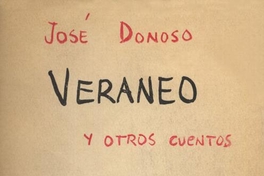 JOSÉ DONOSO
VERANEO
Y OTROS CUENTOS